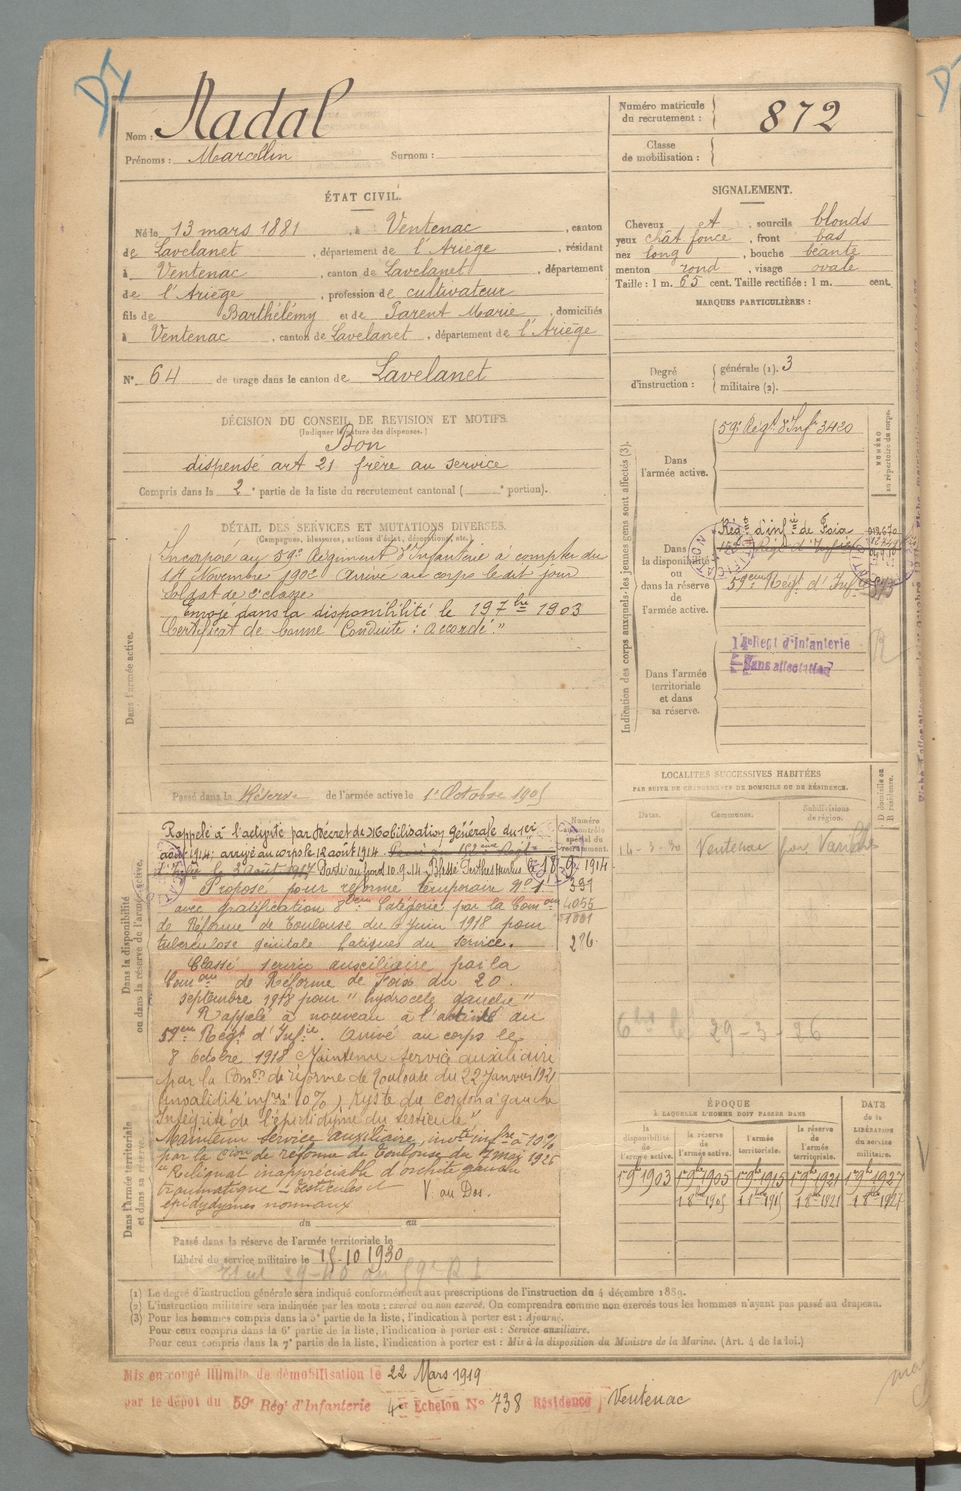 Nom : Nadal
Prénoms : Marcelin Surnom :
Numéro matricule du recrutement : 872
Classe de mobilisation :
ÉTAT CIVIL.
Né le 13 mars 1881, à Ventenac, canton
de Lavelanet, département de l'Ariège, résidant
à Ventenac, canton de Lavelanet, département
de l'Ariège, profession de cultivateur
fils de Barthélémy et de Parent Marie, domiciliés
à Ventenac, canton de Lavelanet, département de l'Ariège
N° 64 de tirage dans le canton de Lavelanet
SIGNALEMENT.
Cheveux, sourcils blonds
yeux chât foncé, front bas
nez long, bouche béante
menton rond, visage ovale
Taille : 1 m. 65 cent. Taille rectifiée : 1 m. cent.
MARQUES PARTICULIÈRES :
Degré d'instruction : générale (1). 3
militaire (2).
DÉCISION DU CONSEIL DE REVISION ET MOTIFS.
(Indiquer la nature des dispenses.)
Bon
dispensé art 21 frère au service
Compris dans la 2e partie de la liste du recrutement cantonal ( portion).
DÉTAIL DES SERVICES ET MUTATIONS DIVERSES.
(Campagnes, blessures, actions d'éclat, décorations, etc.)
Dans l'armée active.
Incorporé au 59e Régiment d'Infanterie à compter du
14 Novembre 1902 Arrivé au corps le dit jour
soldat de 2e classe
Envoyé dans la disponibilité le 19 7bre 1903
Certificat de bonne Conduite : accordé."
Passé dans la Réserve de l'armée active le 1er Octobre 1905
Dans la disponibilité ou dans la réserve de l'armée active.
Rappelé à l'activité par Décret de Mobilisation Générale du 1er
août 1914 ; arrivé au corps le 12 août 1914
Parti au front 10-9-14 Blessé Perthes Hurlus le 18-9-1914
Proposé pour réforme temporaire N° 1
avec gratification 8ème Catégorie par la Comon
de Réforme de Toulouse du 6 Juin 1918 pour
tuberculose génitale fatigues du service.
Classé service auxiliaire par la
Comon de Réforme de Foix du 20
septembre 1918 pour "hydrocèle gauche"
Rappelé à nouveau à l'activité au
59eme Régt d'Infie. Arrivé au corps le
8 Octobre 1918 Maintenu service auxiliaire
par la Comon de réforme de Toulouse du 22 Janvier 1921
invalidité infre 10%, kyste du cordon gauche
Intégrité de l'épididyme du testicule"
Maintenu service auxiliaire, invté infre à 10%
par la Cion de réforme de Toulouse du 7 mai 1926
"Reliquat inappréciable d'orchite gauche
traumatique – testicules et
épididymes normaux V. au Dos.
Numéro au contrôle spécial du recrutement.
391
4055
1001
276
Dans l'armée territoriale et dans sa réserve.
du au
Passé dans la réserve de l'armée territoriale le
Libéré du service militaire le 15-10 1930
Indication des corps auxquels les jeunes gens sont affectés (3).
Dans l'armée active.
59e Régt d'Infie 3420
NUMÉRO au répertoire du corps.
Dans la disponibilité ou dans la réserve de l'armée active.
Régt d'infie de Foix
59eme Régt d'Infie
Dans l'armée territoriale et dans sa réserve.
14e Régt d'Infanterie
Sans affectation
LOCALITÉS SUCCESSIVES HABITÉES
PAR SUITE DE CHANGEMENTS DE DOMICILE OU DE RÉSIDENCE.
Dates. Communes. Subdivisions de région. D domicile ou R résidence.
14-3-30 Ventenac par
29-3-26
ÉPOQUE
À LAQUELLE L'HOMME DOIT PASSER DANS
la disponibilité de l'armée active. la réserve de l'armée active. l'armée territoriale. la réserve de l'armée territoriale. DATE de la LIBÉRATION du service militaire.
19bre 1903 19bre 1905 19bre 1915 19bre 1921 19bre 1927
(1) Le degré d'instruction générale sera indiqué conformément aux prescriptions de l'instruction du 4 décembre 1889.
(2) L'instruction militaire sera indiquée par les mots : exercé ou non exercé. On comprendra comme non exercés tous les hommes n'ayant pas passé au drapeau.
(3) Pour les hommes compris dans la 5e partie de la liste, l'indication à porter est : Ajourné.
Pour ceux compris dans la 6e partie de la liste, l'indication à porter est : Service auxiliaire.
Pour ceux compris dans la 7e partie de la liste, l'indication à porter est : Mis à la disposition du Ministre de la Marine. (Art. 4 de la loi.)
Mis en congé illimité de démobilisation le 22 Mars 1919
par le dépôt du 59e Régt d'Infanterie 4e Echelon N° 738 Résidence Ventenac